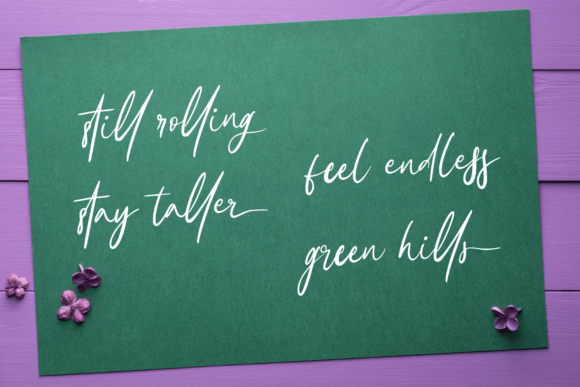 still rolling
stay taller
feel endless
green hills